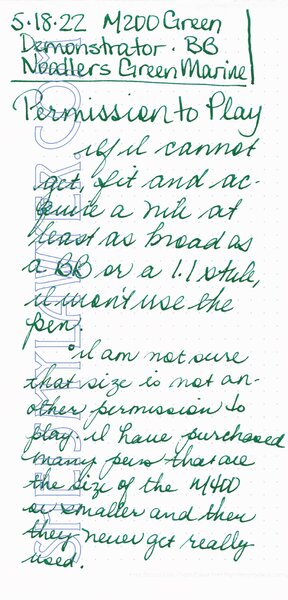 5.18.22 M200 Green
Demonstrator. BB
Noodlers Green Marine
Permission to Play
If I cannot
get, fit and ac-
quire a nib at
least as broad as
a BB or a 1.1 stub,
I won't use the
pen.
I am not sure
that size is not an-
other permission to
play. I have purchased
many pens that are
the size of the M400
or smaller and then
they never get really
used.